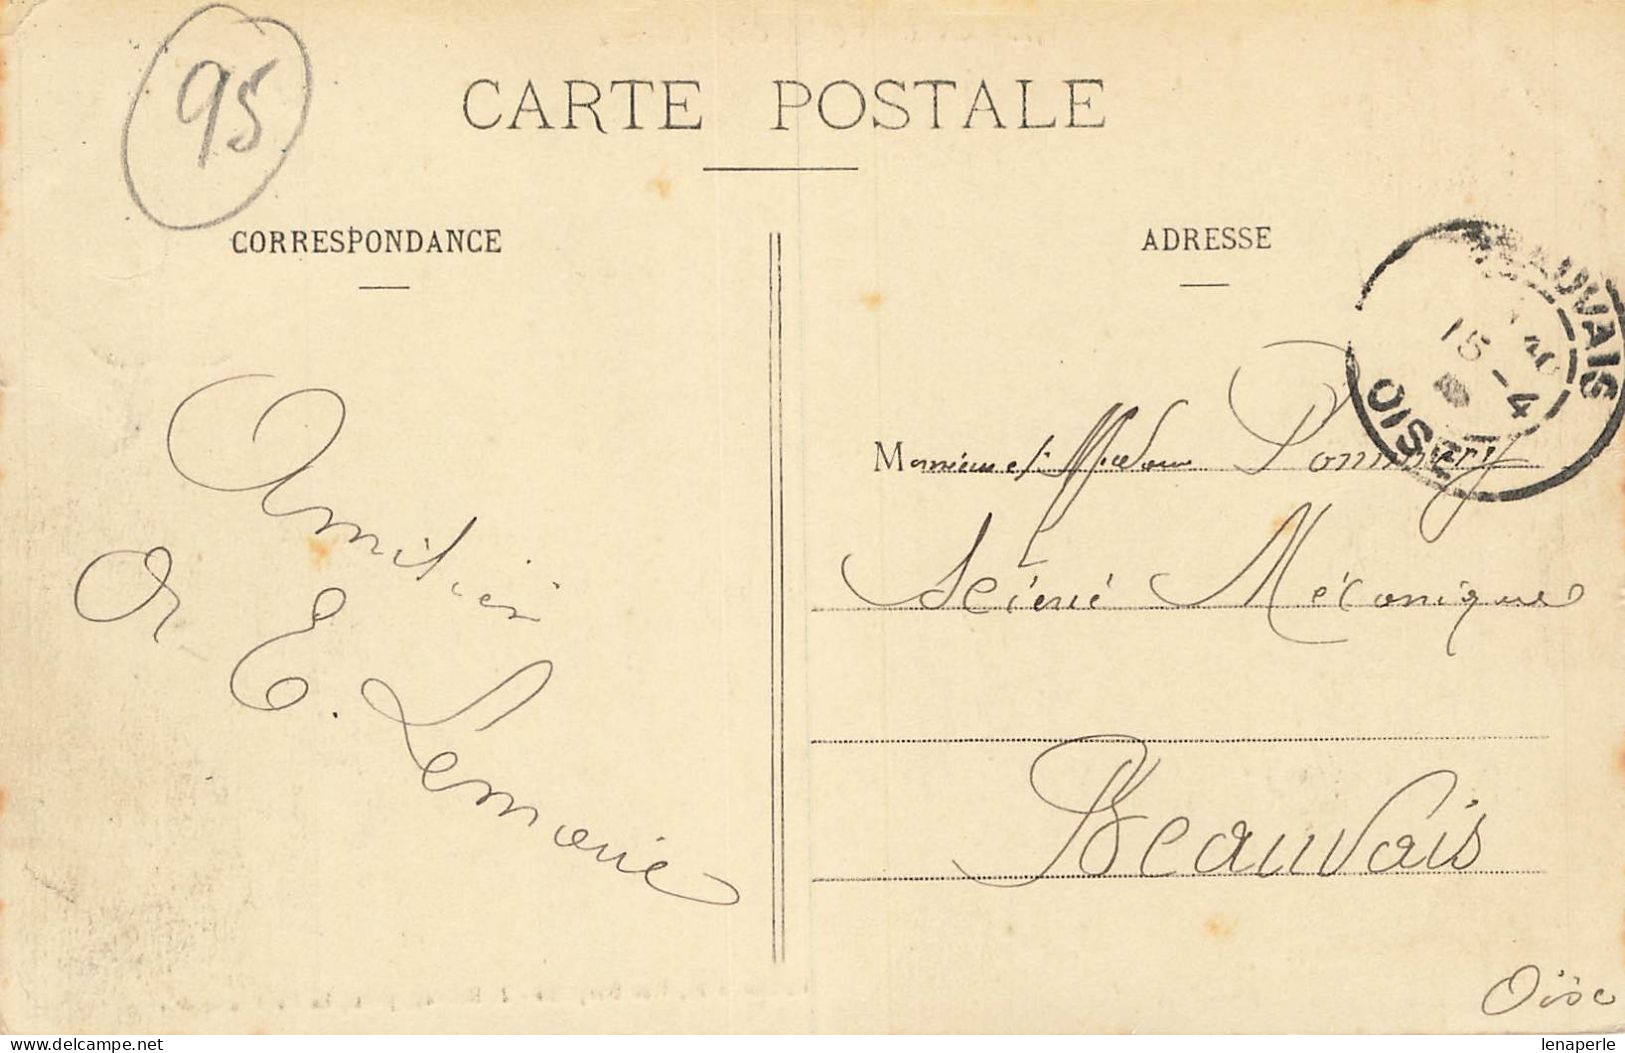 95
CARTE POSTALE
CORRESPONDANCE
ADRESSE
BEAUVAIS
15 - 4
OISE
Amitiés
E. Lemarié
Monsieur et Madame Pommery
Scierie Mécanique
Beauvais
Oise
www.delcampe.net
lenaperle